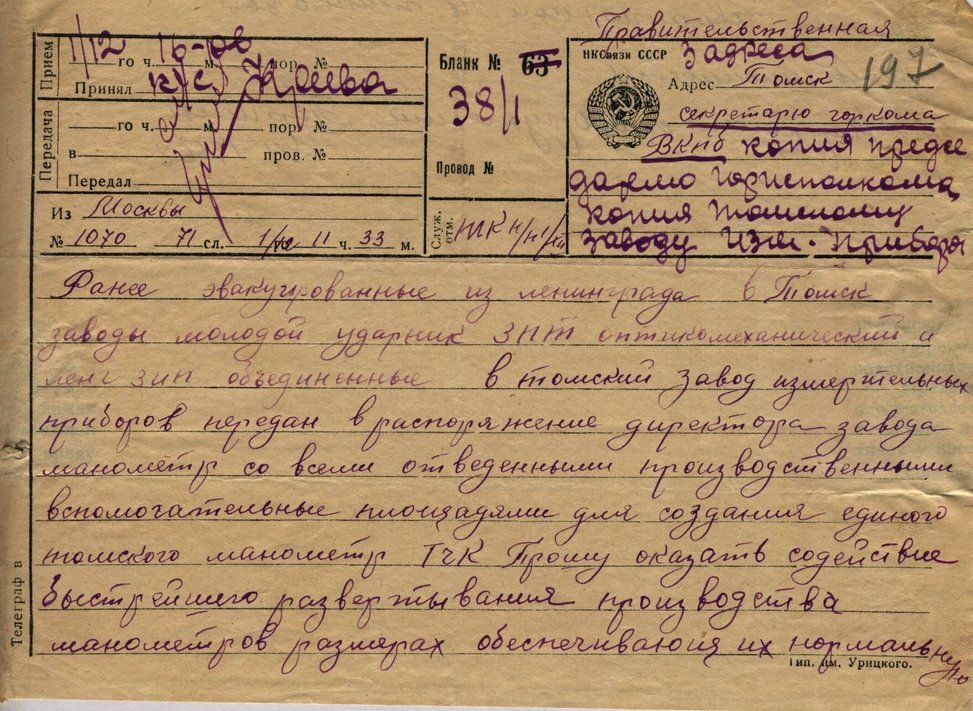 Правительственная
Прием
1/12 го ч. 16-08 м. пор. №
Принял
Передача
го ч. м. пор. №
в пров. №
Передал
Из Москвы
№ 1070 71 сл. 11 ч. 33 м.
Бланк № 63
38/1
Провод №
Служ. отм.
НКСвязи СССР
3 адреса
197
Адрес Томск
секретарю горкома
ВКПб копия предсе
дателю горисполкома
копия томскому
заводу изм. прибора
Ранее эвакуированные из ленинграда в Томск
заводы молодой ударник ЗПТ оптикомеханический и
ленг зип объединенные в томский завод измерительных
приборов передан в распоряжение директора завода
манометр со всеми отведенными производственными
вспомогательные площадями для создания единого
томского манометр ТЧК Прошу оказать содействие
быстрейшего развертывания производства
манометров размерах обеспечивающия их нормальную
Телеграф в
Тип. им. Урицкого.